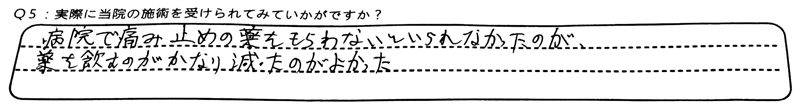 Q5：実際に当院の施術を受けられてみていかがですか？
病院で痛み止めの薬をもらわないといられなかったのが、
薬を飲むのがかなり減ったのがよかった